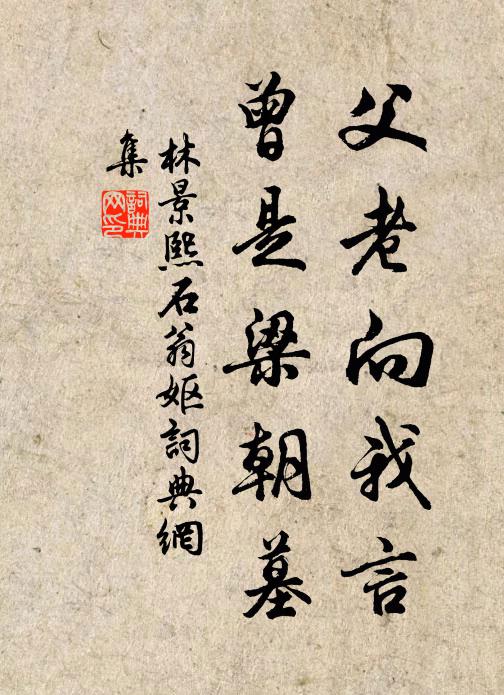 父老向我言
曾是梁朝墓
林景熙石翁妪詞典網
集
詞典网印